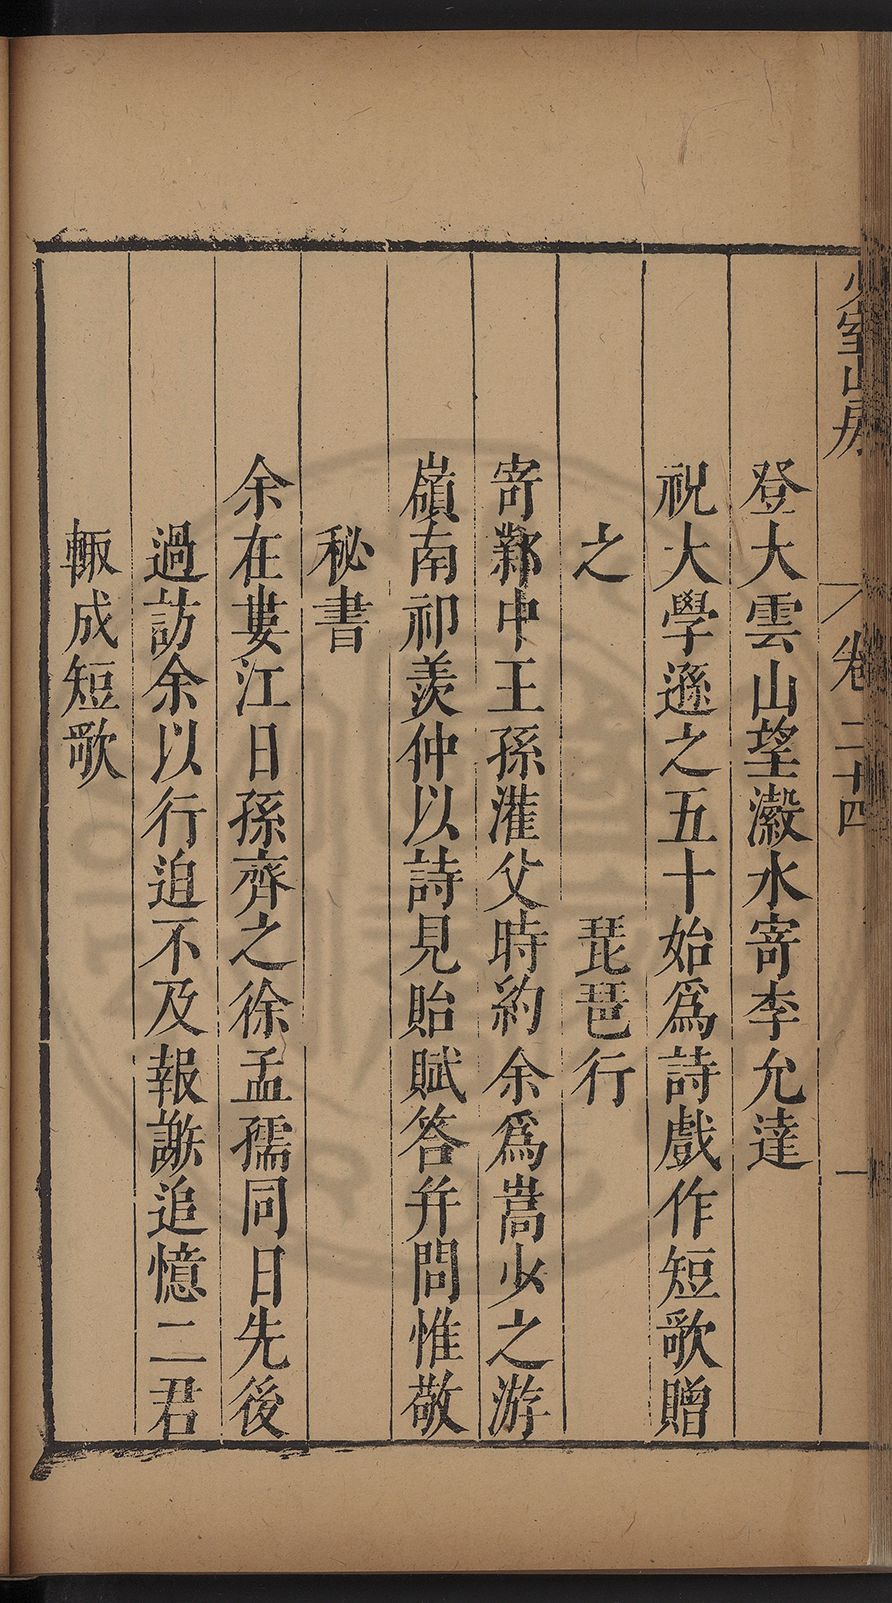 少室山房 卷二十四 一
登大雲山望瀫水寄李允達
祝大學遜之五十始爲詩戲作短歌贈
之 琵琶行
寄鄴中王孫灌父時約余爲嵩少之游
嶺南祁羨仲以詩見貽賦答并問惟敬
秘書
余在婁江日孫齊之徐孟孺同日先後
過訪余以行迫不及報謝追憶二君
輙成短歌